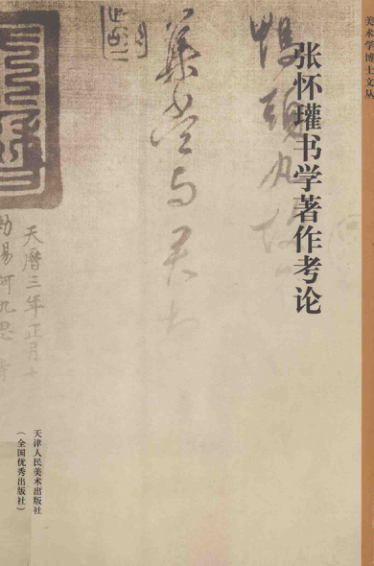 美术学博士文丛
张怀瓘书学著作考论
鸭头丸
集当与君
天曆三年正月十
天津人民美术出版社
(全国优秀出版社)